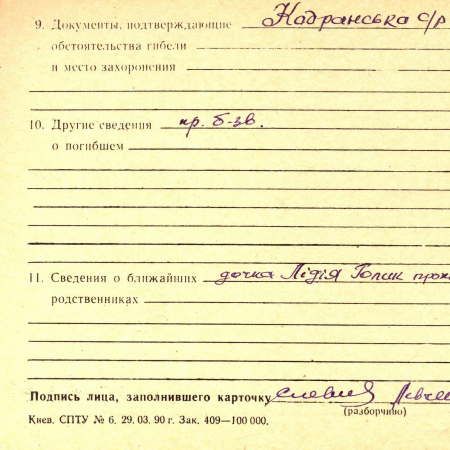 9. Документы, подтверждающие Кадранська с/р
обстоятельства гибели
и место захоронения
10. Другие сведения пр. б-зв.
о погибшем
11. Сведения о ближайших дочка Лідія Голик
родственниках
Подпись лица, заполнившего карточку
(разборчиво)
Киев. СПТУ № 6. 29. 03. 90 г. Зак. 409—100 000.